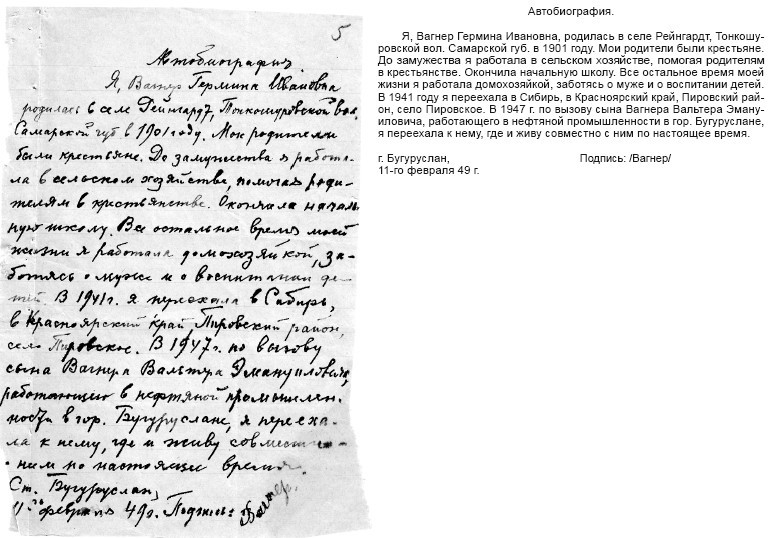 5
Автобиография.
Я, Вагнер Гермина Ивановна
родилась в селе Рейнгардт, Тонкошуровской вол.
Самарской губ в 1901 году. Мои родители
были крестьяне. До замужества я работа-
ла в сельском хозяйстве, помогая роди-
телям в крестьянстве. Окончила началь-
ную школу. Все остальное время моей
жизни я работала домохозяйкой, за-
ботясь о муже и о воспитании де-
тей. В 1941 г. я переехала в Сибирь,
в Красноярский край, Пировский район,
село Пировское. В 1947 г. по вызову
сына Вагнера Вальтера Эмануиловича,
работающего в нефтяной промышлен-
ности в гор. Бугуруслане, я перееха-
ла к нему, где и живу совместно
с ним по настоящее время.
Ст. Бугуруслан,
11го февраля 49 г. Подпись: Вагнер.
Автобиография.
Я, Вагнер Гермина Ивановна, родилась в селе Рейнгардт, Тонкошу-
ровской вол. Самарской губ. в 1901 году. Мои родители были крестьяне.
До замужества я работала в сельском хозяйстве, помогая родителям
в крестьянстве. Окончила начальную школу. Все остальное время моей
жизни я работала домохозяйкой, заботясь о муже и о воспитании детей.
В 1941 году я переехала в Сибирь, в Красноярский край, Пировский рай-
он, село Пировское. В 1947 г. по вызову сына Вагнера Вальтера Эману-
иловича, работающего в нефтяной промышленности в гор. Бугуруслане,
я переехала к нему, где и живу совместно с ним по настоящее время.
г. Бугуруслан, Подпись: /Вагнер/
11-го февраля 49 г.